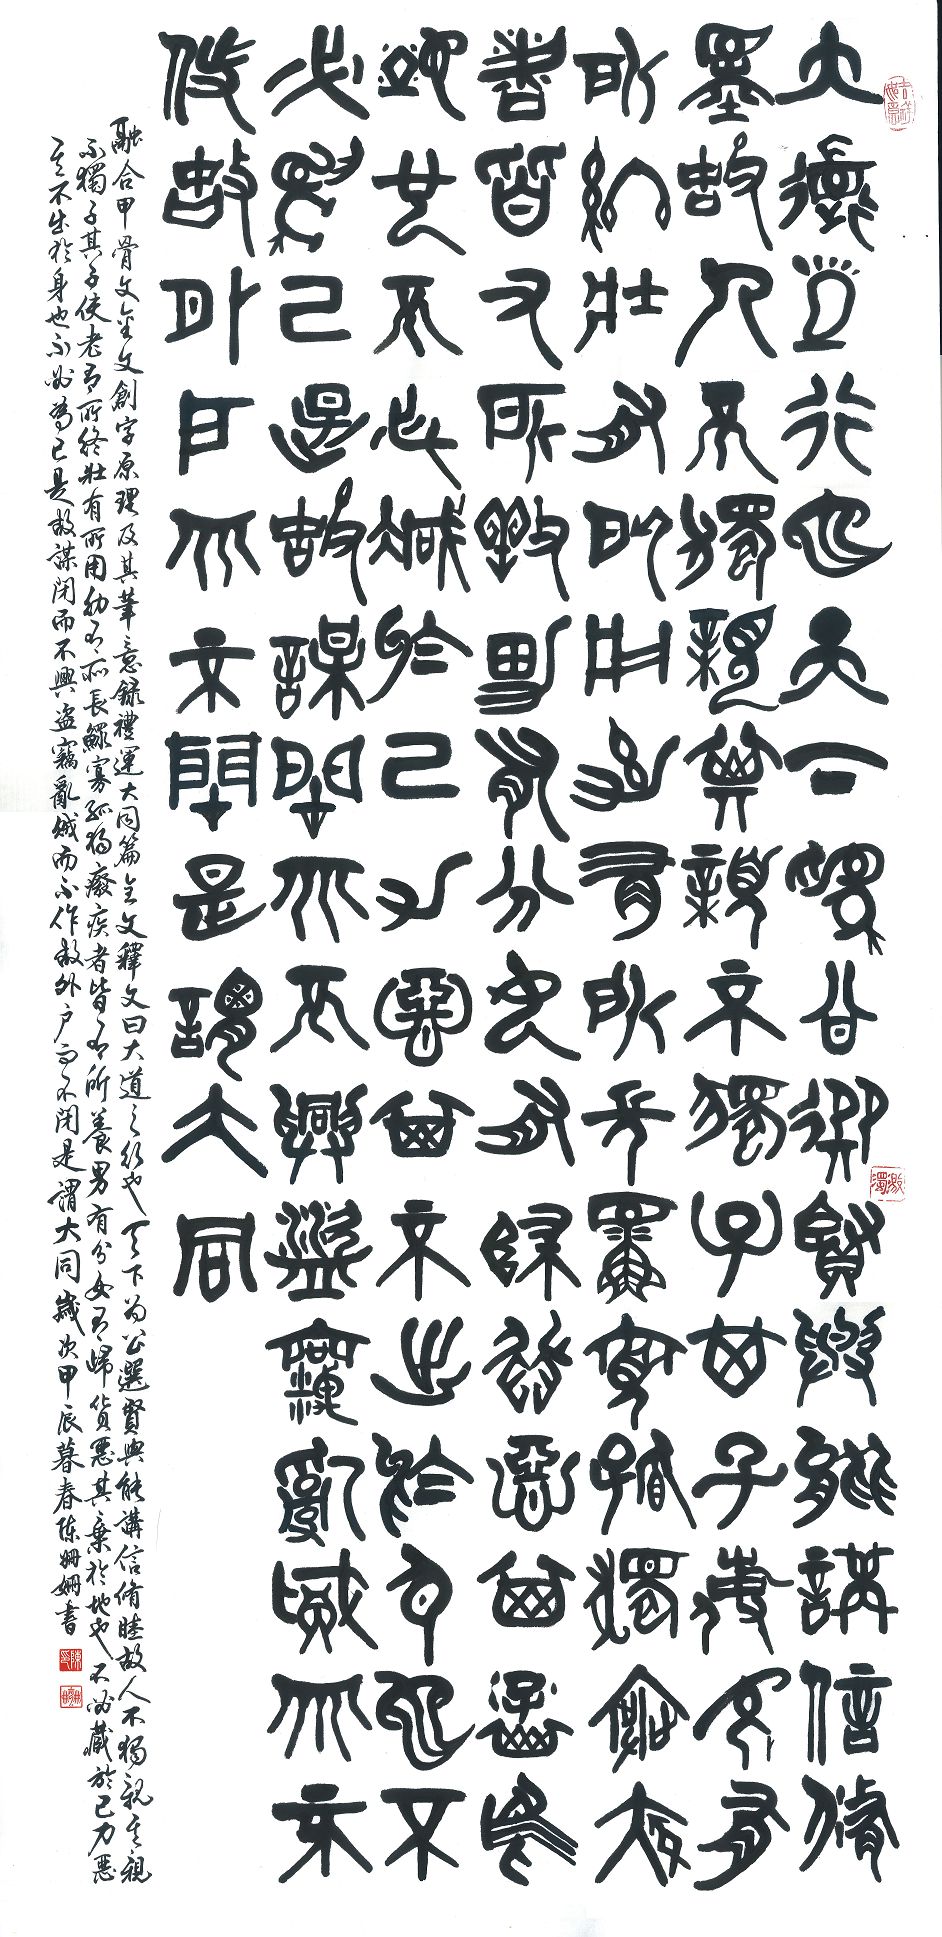 大道之行也天下為公選賢與能講信脩
睦故人不獨親其親不獨子其子使老有
所終壯有所用幼有所長鰥寡孤獨廢疾
者皆有所養男有分女有歸貨惡其棄於
地也不必藏於己力惡其不出於身也不
必為己是故謀閉而不興盜竊亂賊而不
作故外戶而不閉是謂大同
融合甲骨文金文創字原理及其筆意錄禮運大同篇全文釋文曰大道之行也天下為公選賢與能講信脩睦故人不獨親其親
不獨子其子使老有所終壯有所用幼有所長鰥寡孤獨廢疾者皆有所養男有分女有歸貨惡其棄於地也不必藏於己力惡
其不出於身也不必為己是故謀閉而不興盜竊亂賊而不作故外戶而不閉是謂大同歲次甲辰暮春陳姍姍書